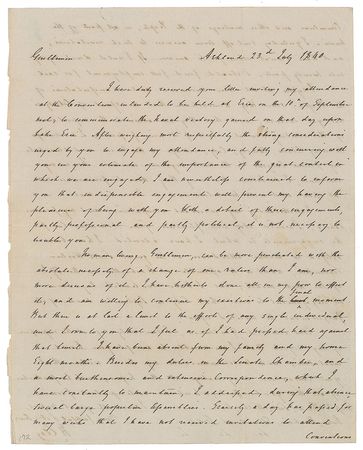 Gentlemen Ashland 23d July 1840
I have duly received your letter inviting my attendance
at the Convention intended to be held at Erie on the 10th of September
next, to commemorate the Naval victory gained on that day upon
Lake Erie. After weighing most respectfully the strong considerations
urged by you to engage my attendance, and fully concurring with
you in your estimate of the importance of the great contest in
which we are engaged, I am nevertheless constrained to inform
you that indispensable engagements will prevent my having the
pleasure of being with you. With a detail of these engagements,
partly professional and partly political, it is not necessary to
trouble you.
No man living, Gentlemen, can be more persuaded with the
absolute necessity of a change of our Rulers than I am, nor
more desirous of it. I have hitherto done all in my power to effect
it, and am willing to continue my exertions to the final moment
But there is at last a limit to the efforts of any single individual,
and I own to you that I feel as if I had pressed hard against
that limit. I have been absent from my family and my home
Eight months. Besides my duties in the Senate Chamber, and
a most burthensome and extensive Correspondence, which I
have constantly to maintain, I addressed, during that absence
several large popular assemblies. Scarcely a day has passed for
many weeks that I have not received invitations to attend
Conventions